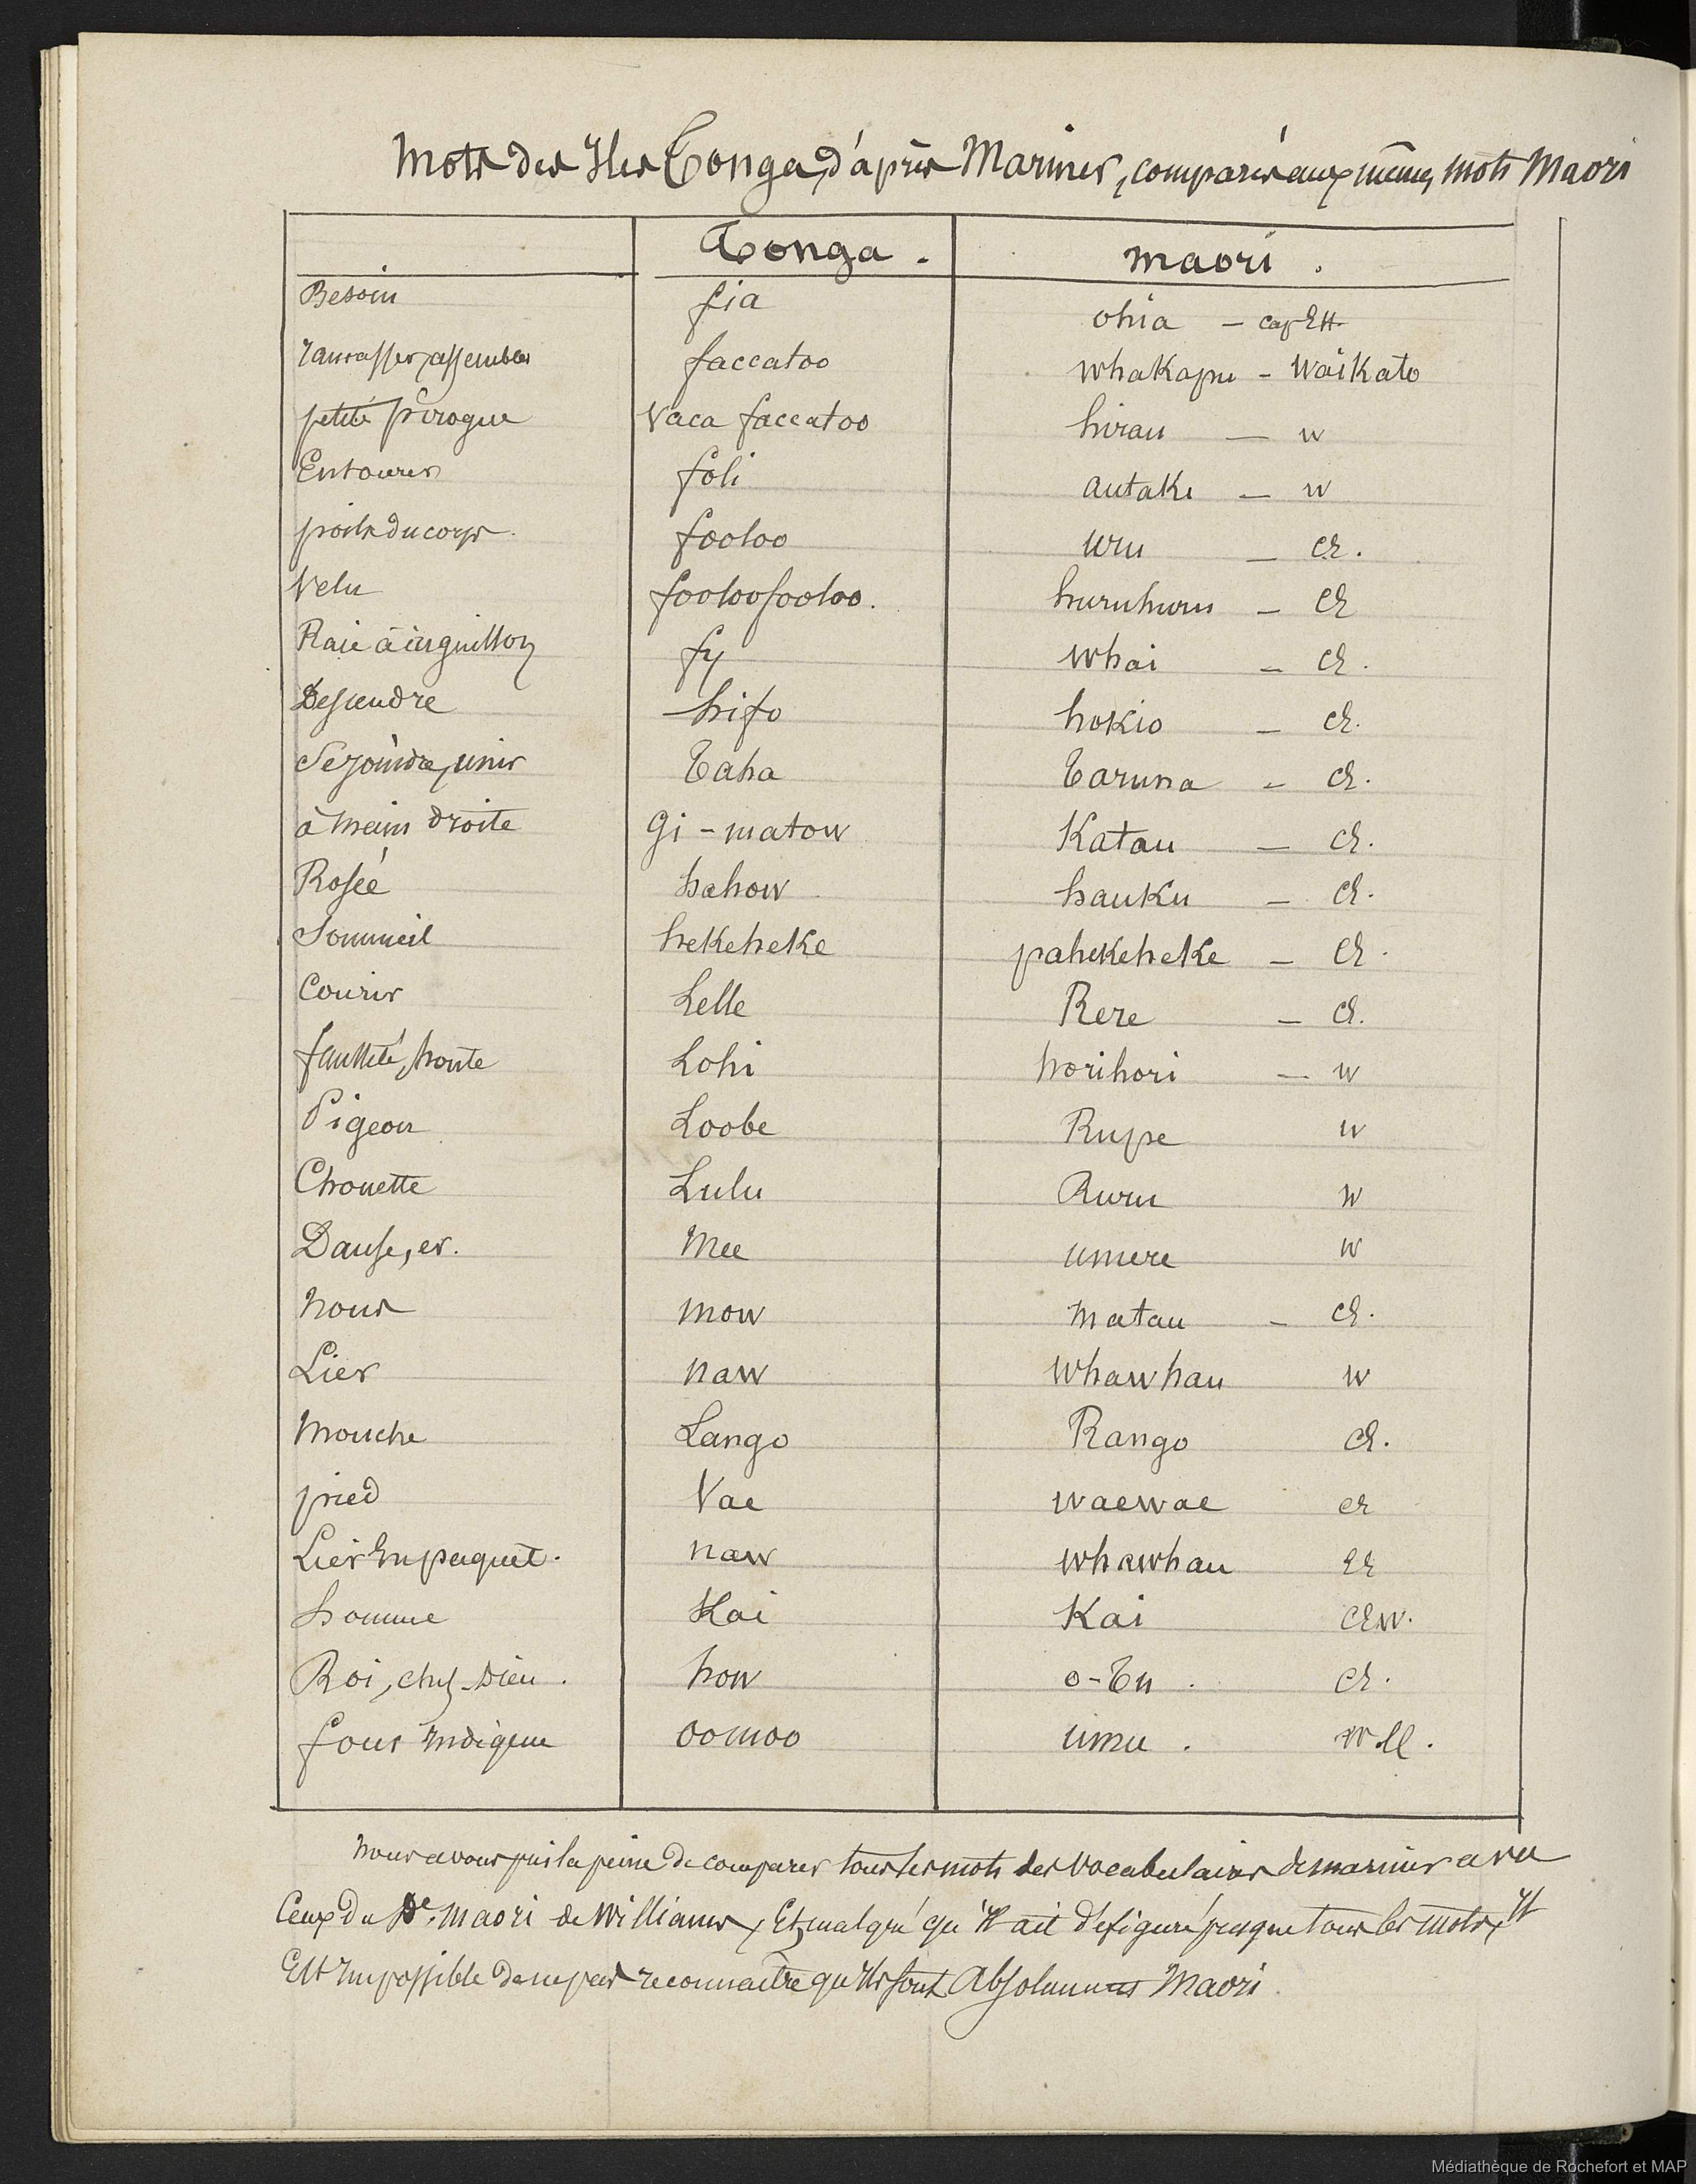 Mots des Iles Tonga, d'après Mariner, comparés aux mêmes mots Maori
Tonga. maori.
Besoin fia ohia - cap Ett.
ramasser, assembler faccatoo whakapu - Waikato
petite pirogue Vaca faccatoo hirau - w
Entourer foli autaki - w
poils du corps. fooloo uru - CE.
Velu fooloofooloo. huruhuru - CE
Raie à aiguillon fy whai - CE.
Descendre hifo hokio - CE.
Se joindre, unir Taha Taruna - CE.
à main droite gi-matow Katau - CE.
Rosée hahow hauku - CE.
Sommeil hekeheke pahekeheke - CE.
Courir Lelle Rere - CE.
fausseté, honte Lohi horihori - w
Pigeon Loobe Rupe w
Chouette Lulu Ruru w
Danse, er. Mee umere w
Nous mow matau - CE.
Lier naw Whawhau w
Mouche Lango Rango CE.
pied Vae waewae CE
Lier En paquet. naw whawhau CE
homme Kai Kai CEW.
Roi, chef-Dieu. how o-Tu. CE.
four Indigene oomoo umu. W
Nous avons pris la peine de comparer tous les mots des Vocabulaires de mariner avec
Ceux du De. Maori de Williams, Et malgré qu'Il ait défiguré presque tous les mots, Il
Est Impossible de ne pas reconnaitre qu'Ils sont Absolument Maori.
Médiathèque de Rochefort et MAP